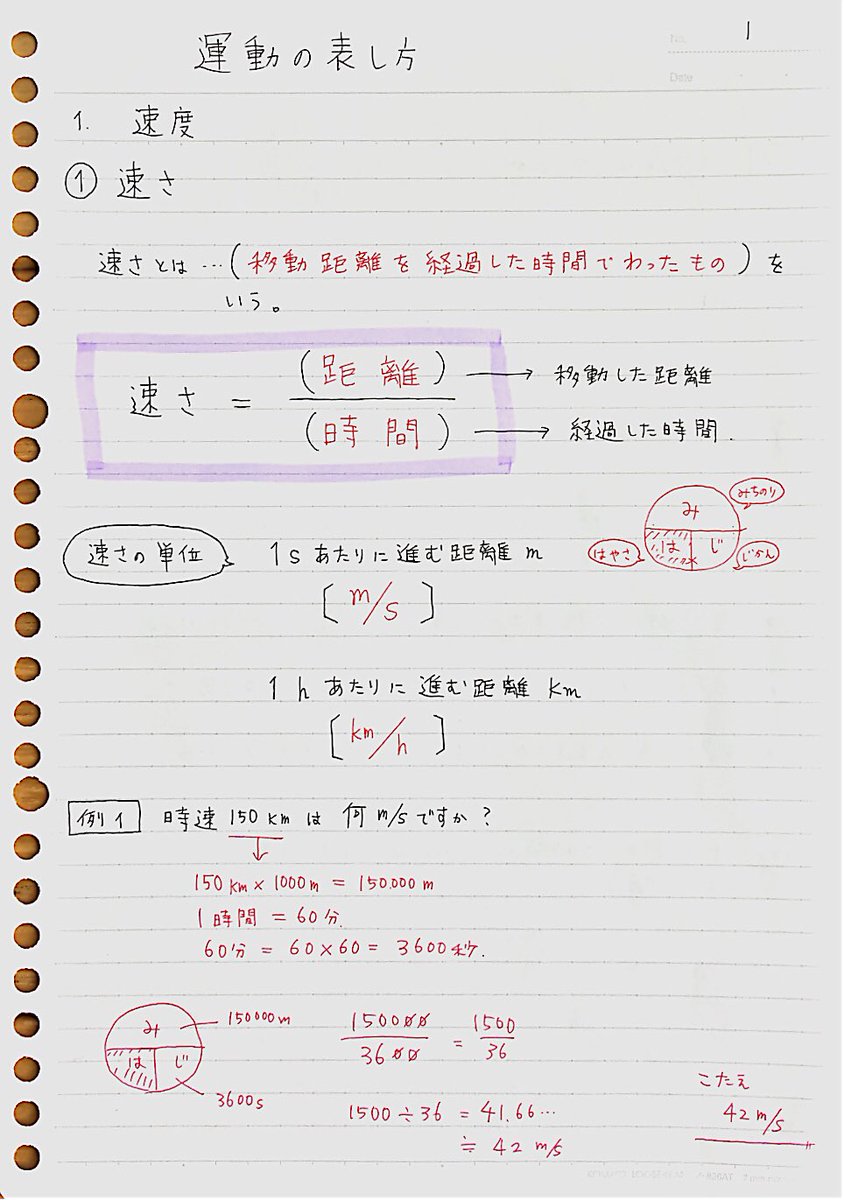 No. 1
運動の表し方
Date
1. 速度
① 速さ
速さとは…(移動距離を経過した時間でわったもの)を
いう。
速さ = (距離) → 移動した距離
(時間) → 経過した時間.
み みちのり
はやさ は じ じかん
速さの単位 1s あたりに進む距離 m
[m/s]
1 h あたりに進む距離 km
[km/h]
例1 時速 150 km は 何 m/s ですか?
↓
150 km × 1000 m = 150.000 m
1時間 = 60分.
60分 = 60×60 = 3600秒.
み 150000m
は じ
3600s
150000/3600 = 1500/36
1500÷36 = 41.66…
≒ 42 m/s
こたえ
42 m/s